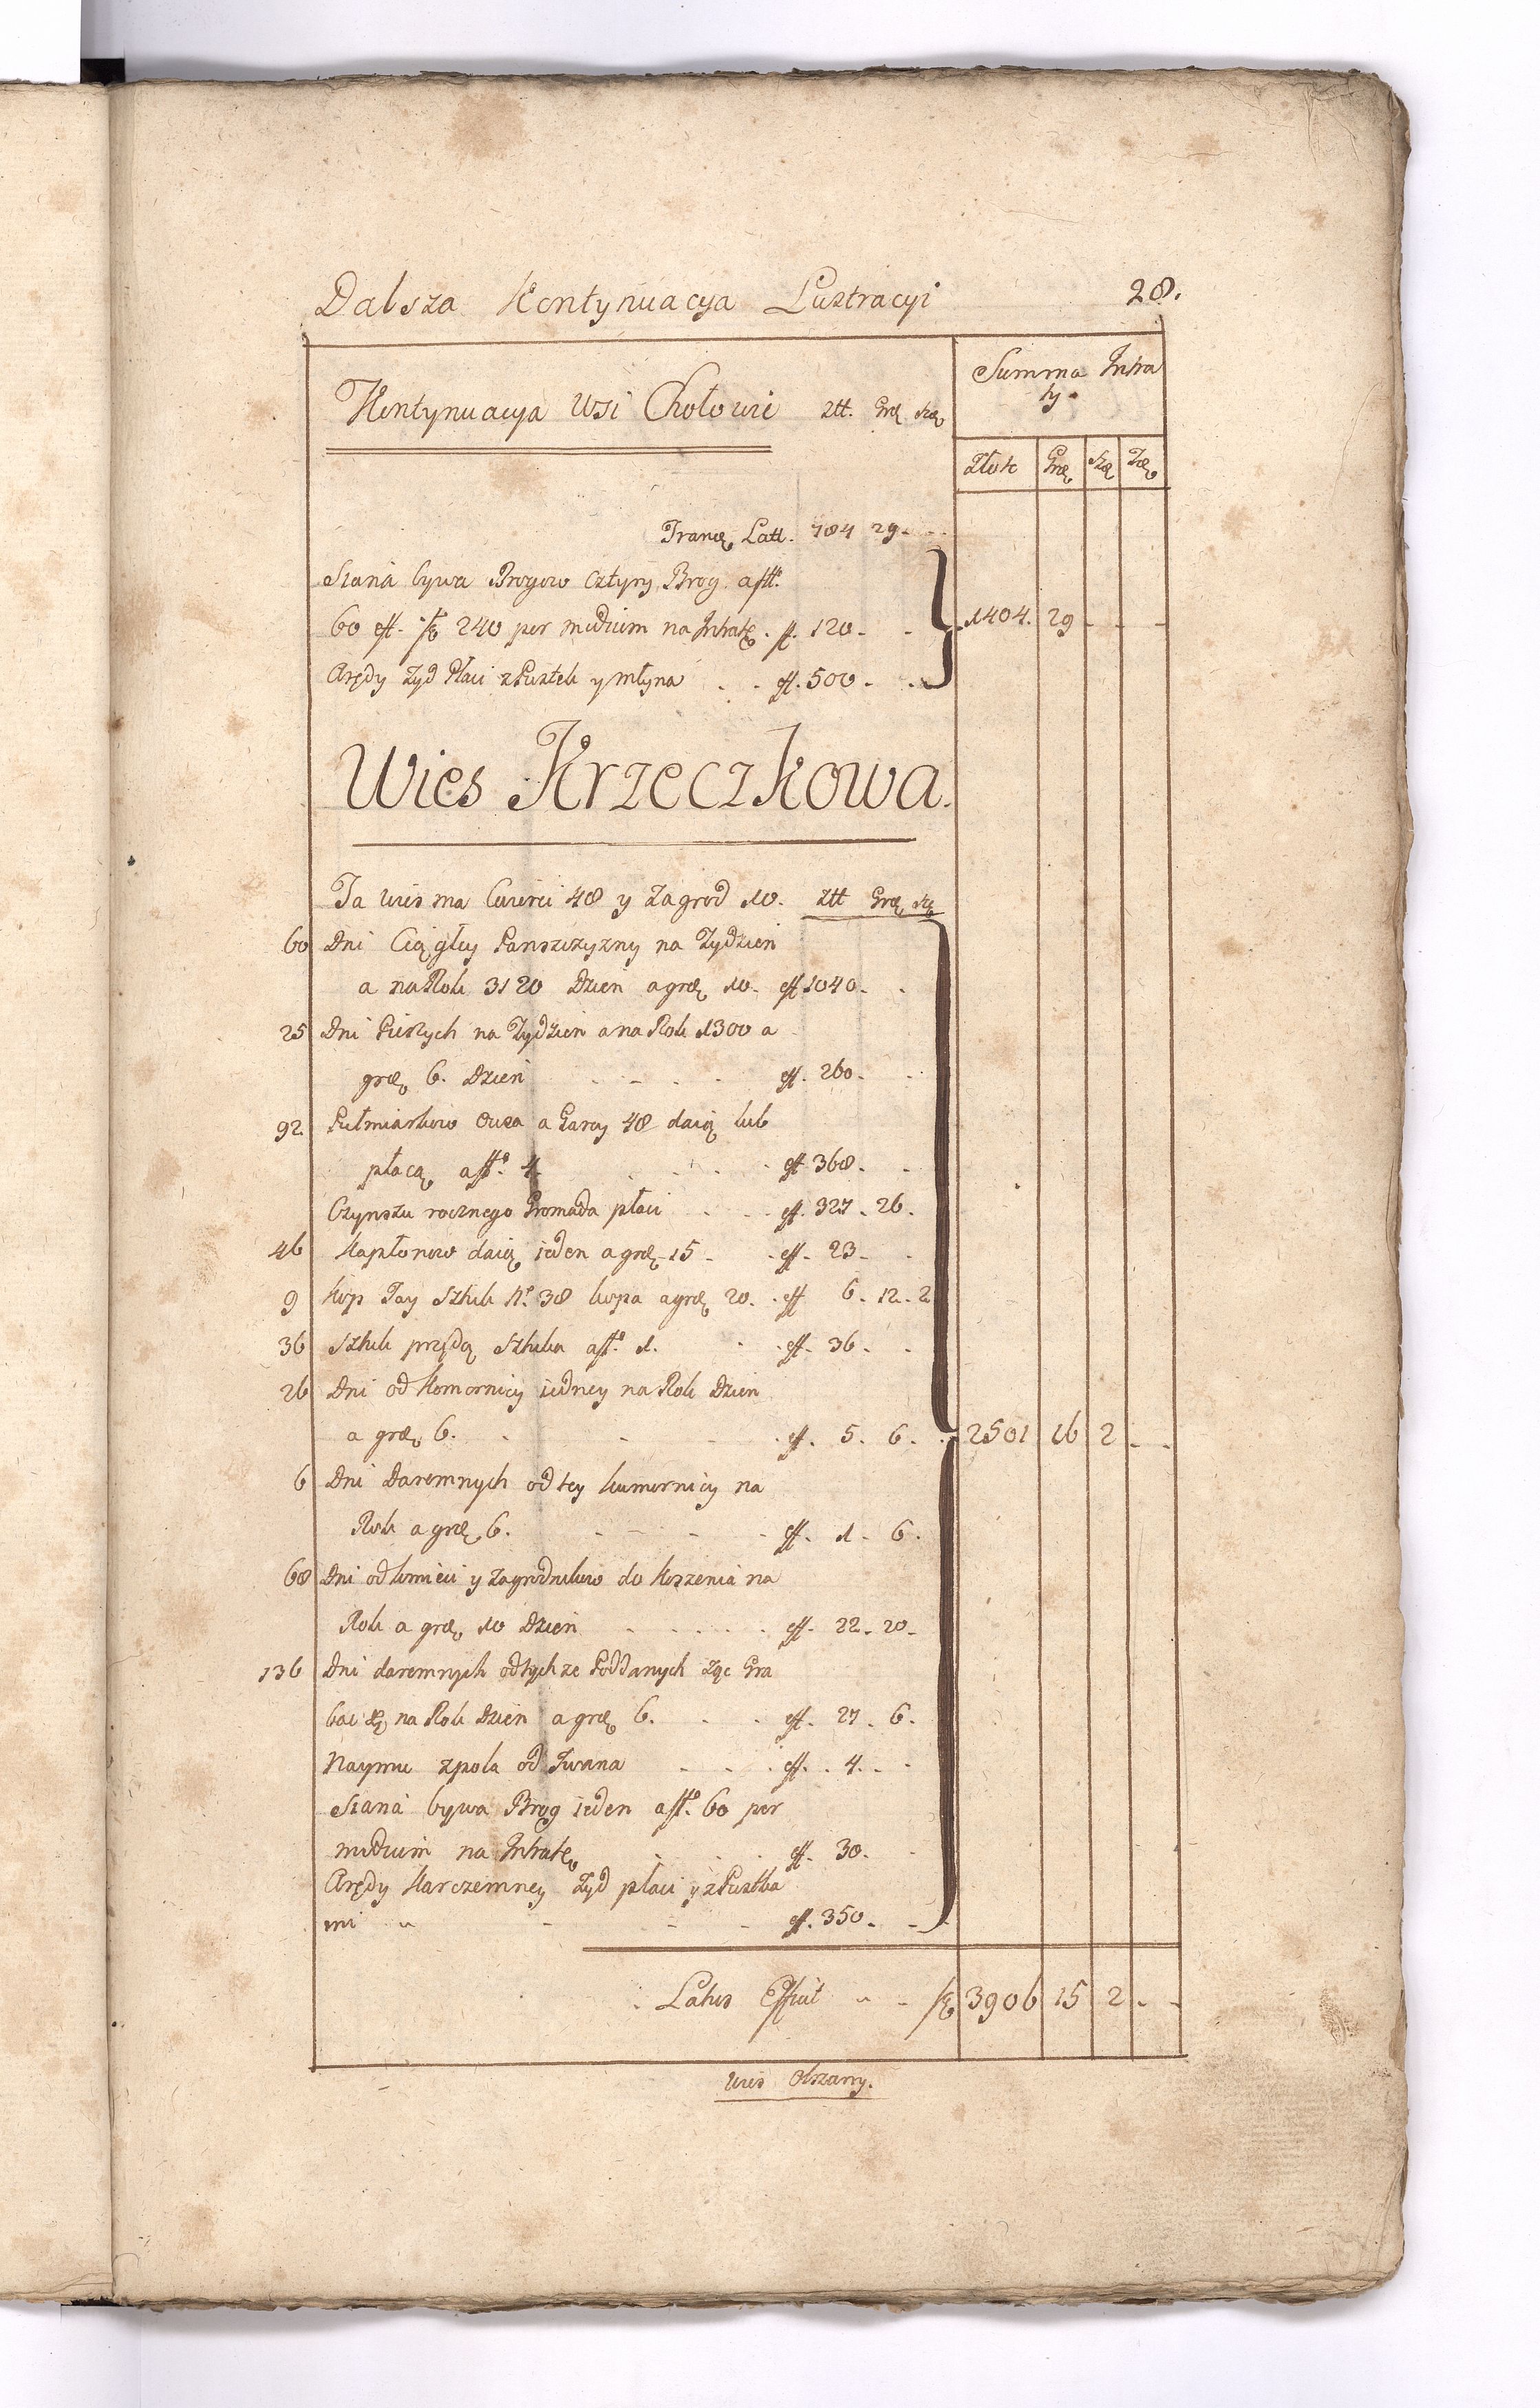 Dalsza Kontynuacya Lustracyi 28.
Kontynuacya Wsi Chołowic ztt. Grę Szę
Summa Intra
ty.
Złote Grę Szę Zzę
Tranę Latt. 784 29 - -
Siana bywa Brogow cztyry Brog a ff.
60 eff. fę 240 per medium na Intratę. ff. 120 - -
1404. 29 - - -
Arędy Zyd Płaci z Pustek y młyna . . eff. 500 - -
Wies Krzeczkowa.
Ta wies ma Cwierci 48 y Zagrod 10. ztt Grę Szę
60 Dni Ciągłey Panszczyzny na Tydzień
a na Rok 3120 Dzień a grę 10. eff 1040 - -
25 Dni Pieszych na Tydzień a na Rok 1300 a
grę 6. Dzień . - . . eff. 260 - -
92. Pułmiarkow Owsa a Garcy 48 daią lub
płacą a ff. 4 . . . . eff 368. -
Czynszu rocznego Gromada płaci . . . eff. 327. 26.
46 Kapłonow daią ieden a grę 15 - . eff. 23 - -
9 Kop Jay Sztuk N. 38 kopa a grę 20. . eff 6. 12. 2
36 Sztuk przędą Sztuka a ff. 1. . . eff. 36 - -
26 Dni od Komornicy iedney na Rok Dzień
a grę 6. . - - . eff. 5. 6. . 2501 16 2 - -
6 Dni Daremnych od tey komornicy na
Rok a grę 6. - - - . eff. 1 - 6.
68 Dni od kmieci y zagrodnikow do koszenia na
Rok a grę 10 Dzień . . . . . eff. 22. 20 -
136 Dni daremnych od tychze Poddanych żąć Gra
bać &ę na Rok Dzień a grę 6. . . eff. 27. 6.
Naymu z pola od Iwana . . . eff. . 4. . .
Siana bywa Brog ieden a ff. 60 per
medium na Intratę . . . eff. 30. -
Arędy Karczemney Zyd płaci y z Pustka
mi - - - - eff. 350 - -
Latus Efficit - - fę 3906 15 2 - -
Wies Olszany.